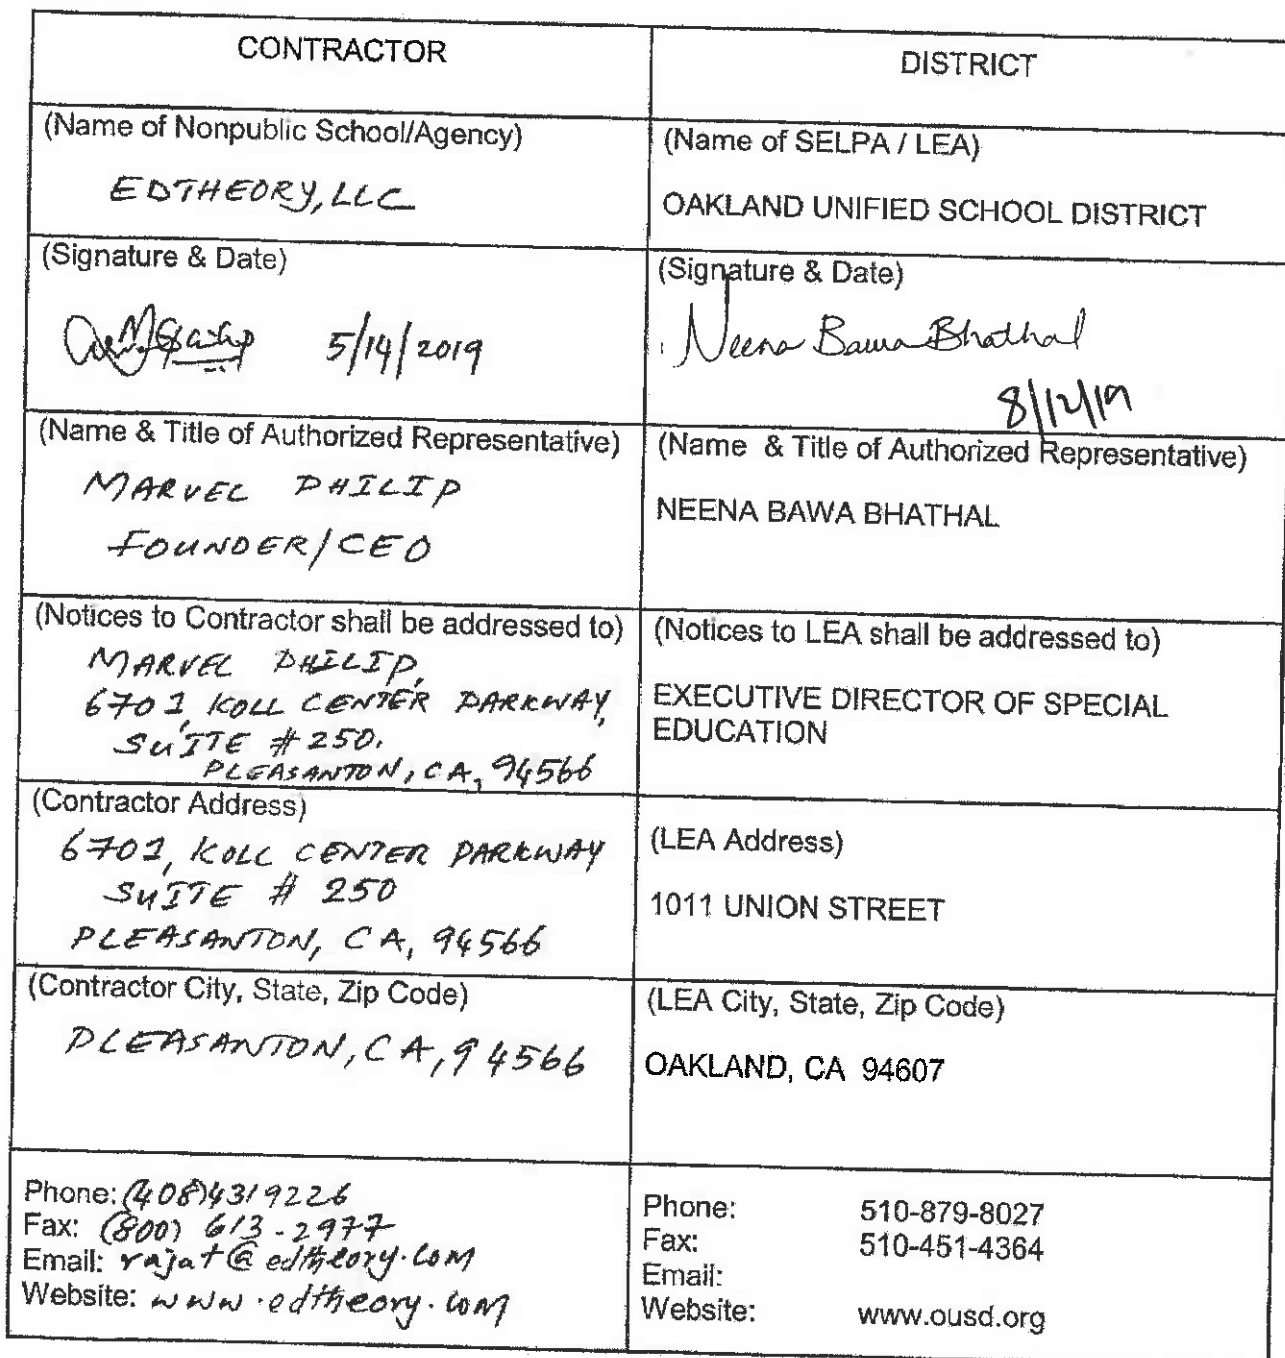 CONTRACTOR
DISTRICT
(Name of Nonpublic School/Agency)
EDTHEORY, LLC
(Name of SELPA / LEA)
OAKLAND UNIFIED SCHOOL DISTRICT
(Signature & Date)
5/14/2019
(Signature & Date)
Neena Bawa Bhathal
8/12/19
(Name & Title of Authorized Representative)
MARVEL PHILIP
FOUNDER/CEO
(Name & Title of Authorized Representative)
NEENA BAWA BHATHAL
(Notices to Contractor shall be addressed to)
MARVEL PHILIP,
6701, KOLL CENTER PARKWAY,
SUITE #250.
PLEASANTON, CA, 94566
(Notices to LEA shall be addressed to)
EXECUTIVE DIRECTOR OF SPECIAL
EDUCATION
(Contractor Address)
6701, KOLL CENTER PARKWAY
SUITE # 250
PLEASANTON, CA, 94566
(LEA Address)
1011 UNION STREET
(Contractor City, State, Zip Code)
PLEASANTON, CA, 94566
(LEA City, State, Zip Code)
OAKLAND, CA 94607
Phone: (408)4319226
Fax: (800) 613-2977
Email: rajat@edtheory.com
Website: www.edtheory.com
Phone: 510-879-8027
Fax: 510-451-4364
Email:
Website: www.ousd.org